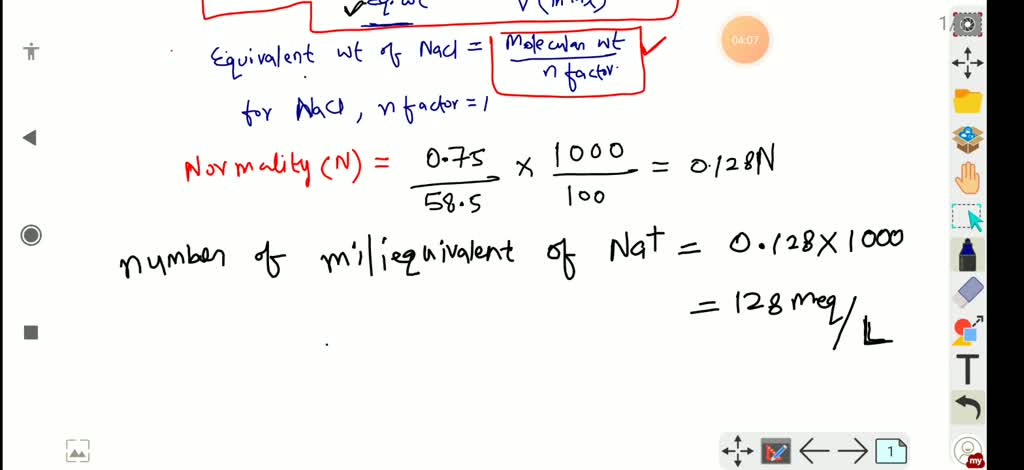 eq.wt V(in mL)
Equivalent wt of NaCl = Molecular wt / n factor
for NaCl, n factor = 1
Normality (N) = 0.75 / 58.5 × 1000 / 100 = 0.128N
number of milliequivalent of Na+ = 0.128 × 1000
= 128 meq/L
04:07
1/
T
1
my